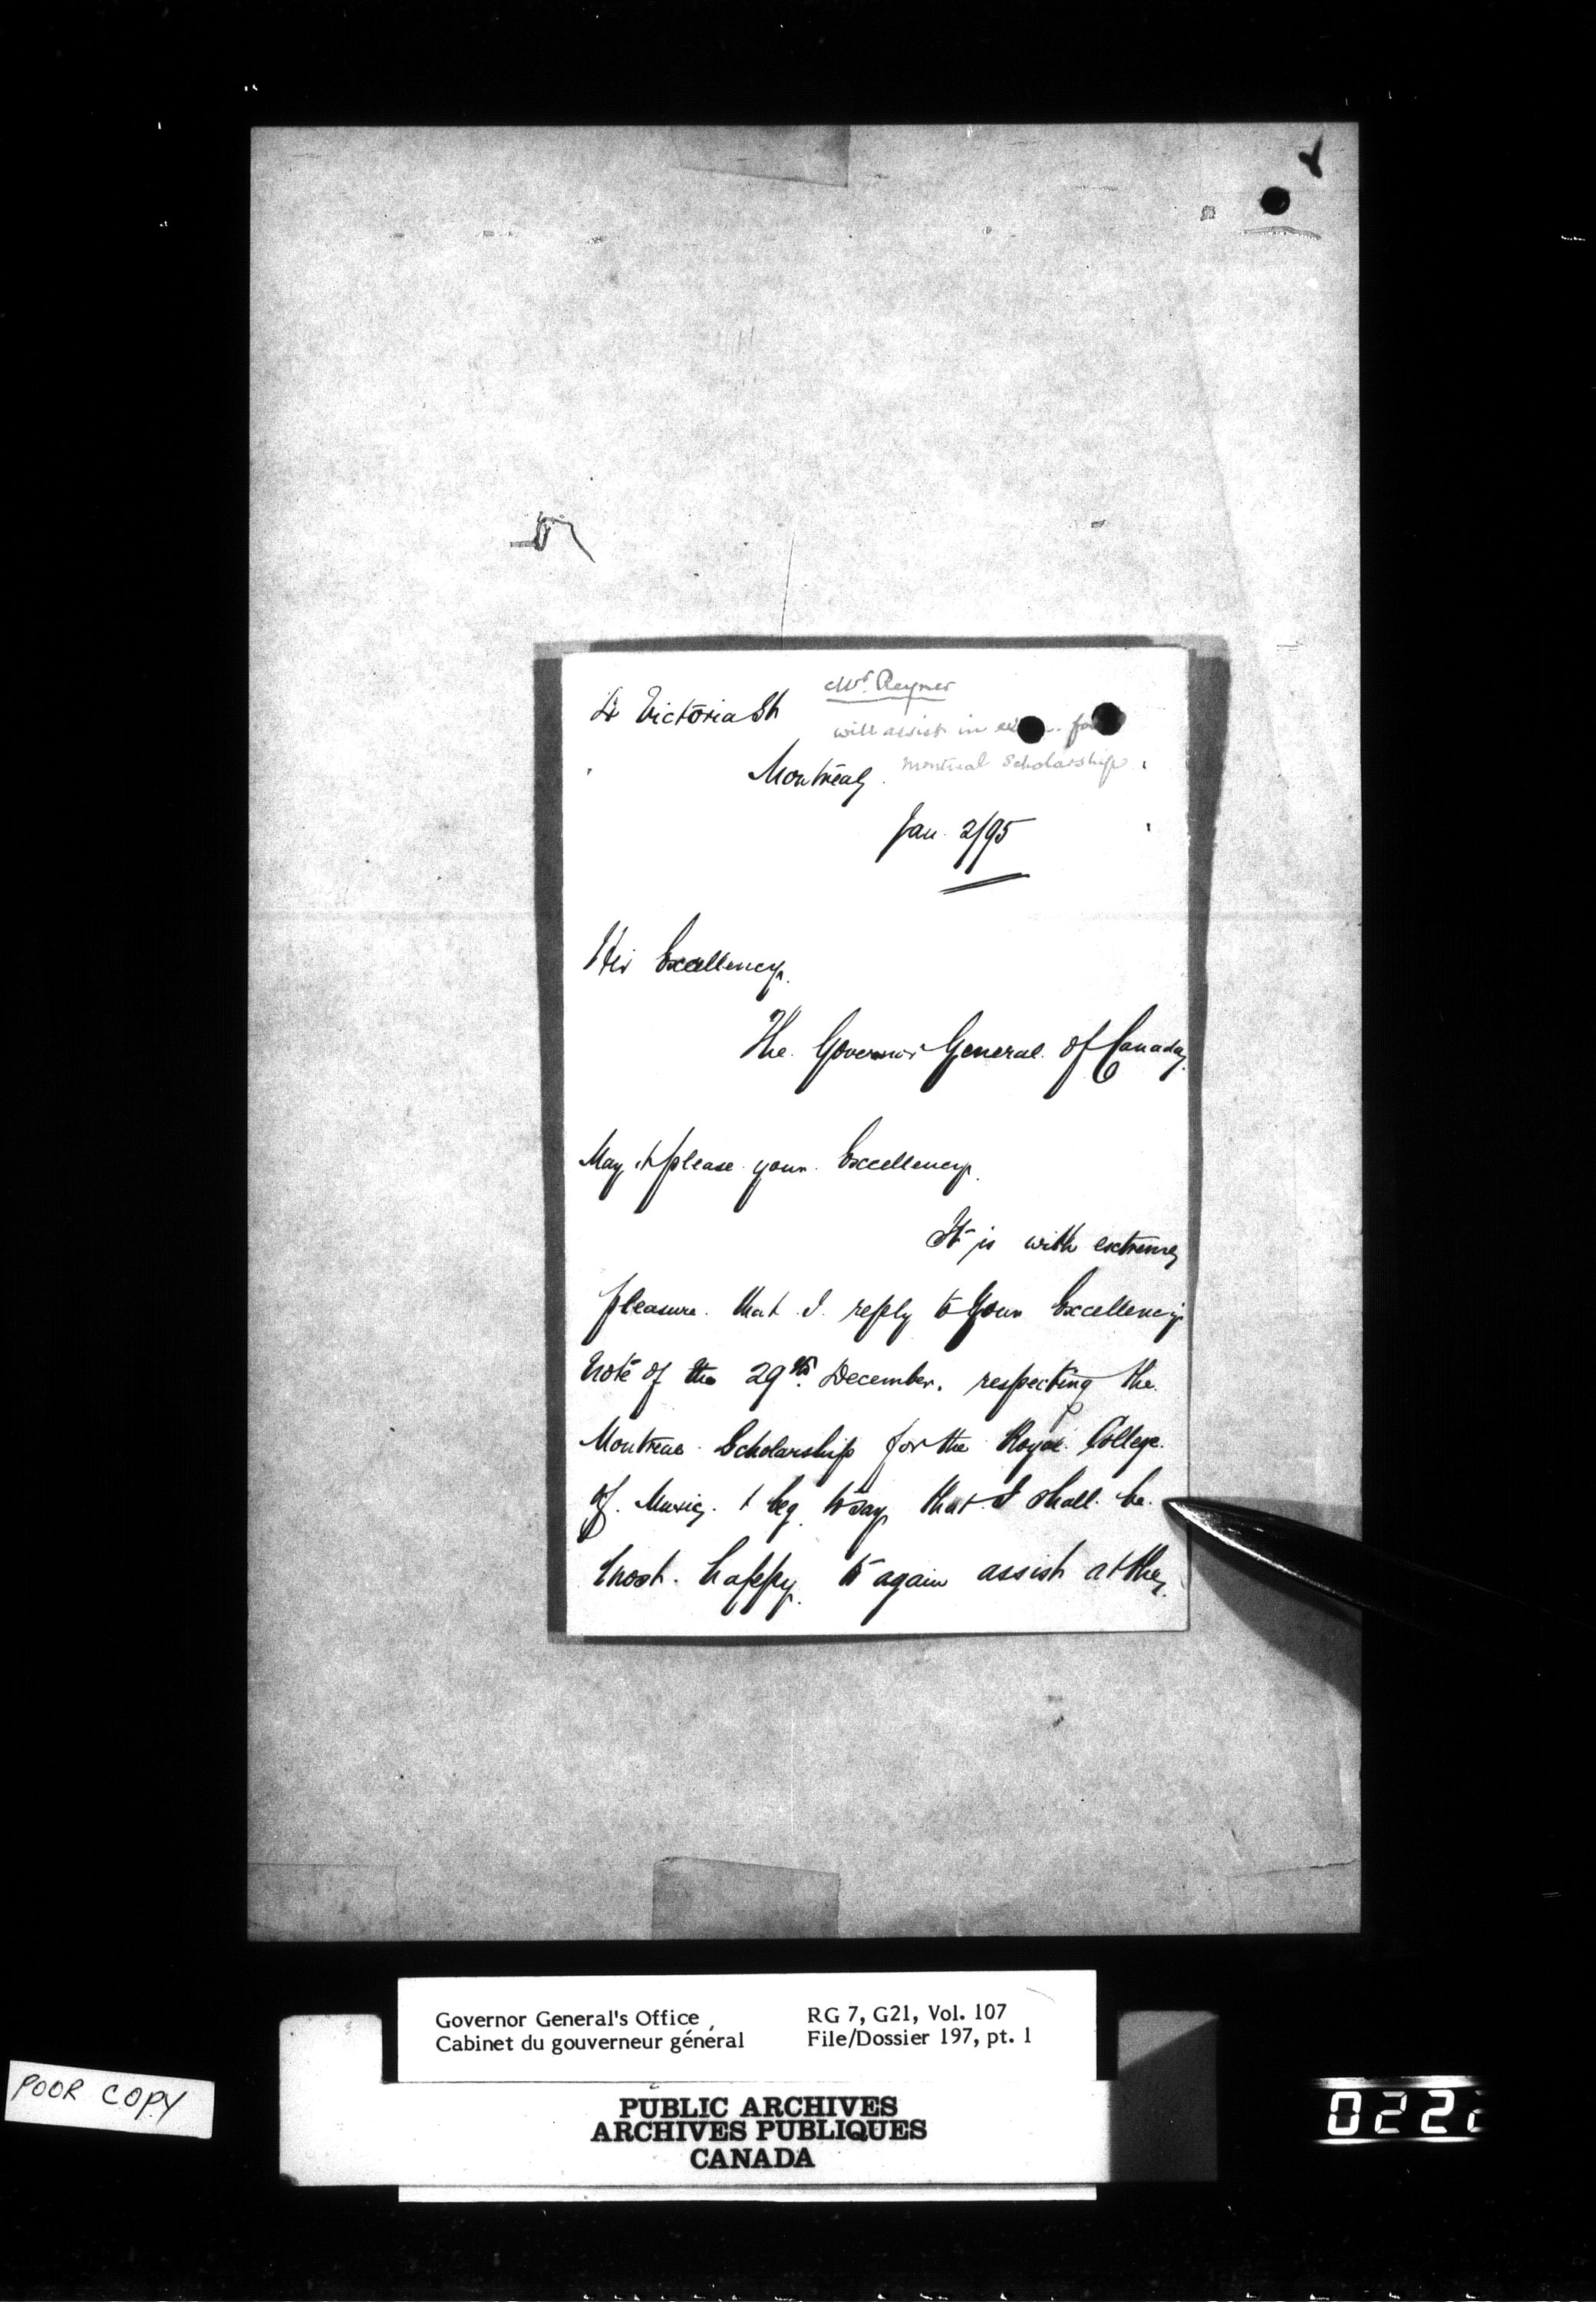 Mr. Reyner
Victoria St
will assist in for
Montreal Scholarship
Montreal
Jan. 2/95
His Excellency.
The Governor General of Canada,
May it please your Excellency.
It is with extreme
pleasure that I reply to Your Excellency
note of the 29th December, respecting the
Montreal Scholarship for the Royal College
of Music. I beg to say that I shall be
most happy to again assist at the
Governor General's Office
Cabinet du gouverneur général
RG 7, G21, Vol. 107
File/Dossier 197, pt. 1
POOR COPY
PUBLIC ARCHIVES
ARCHIVES PUBLIQUES
CANADA
022